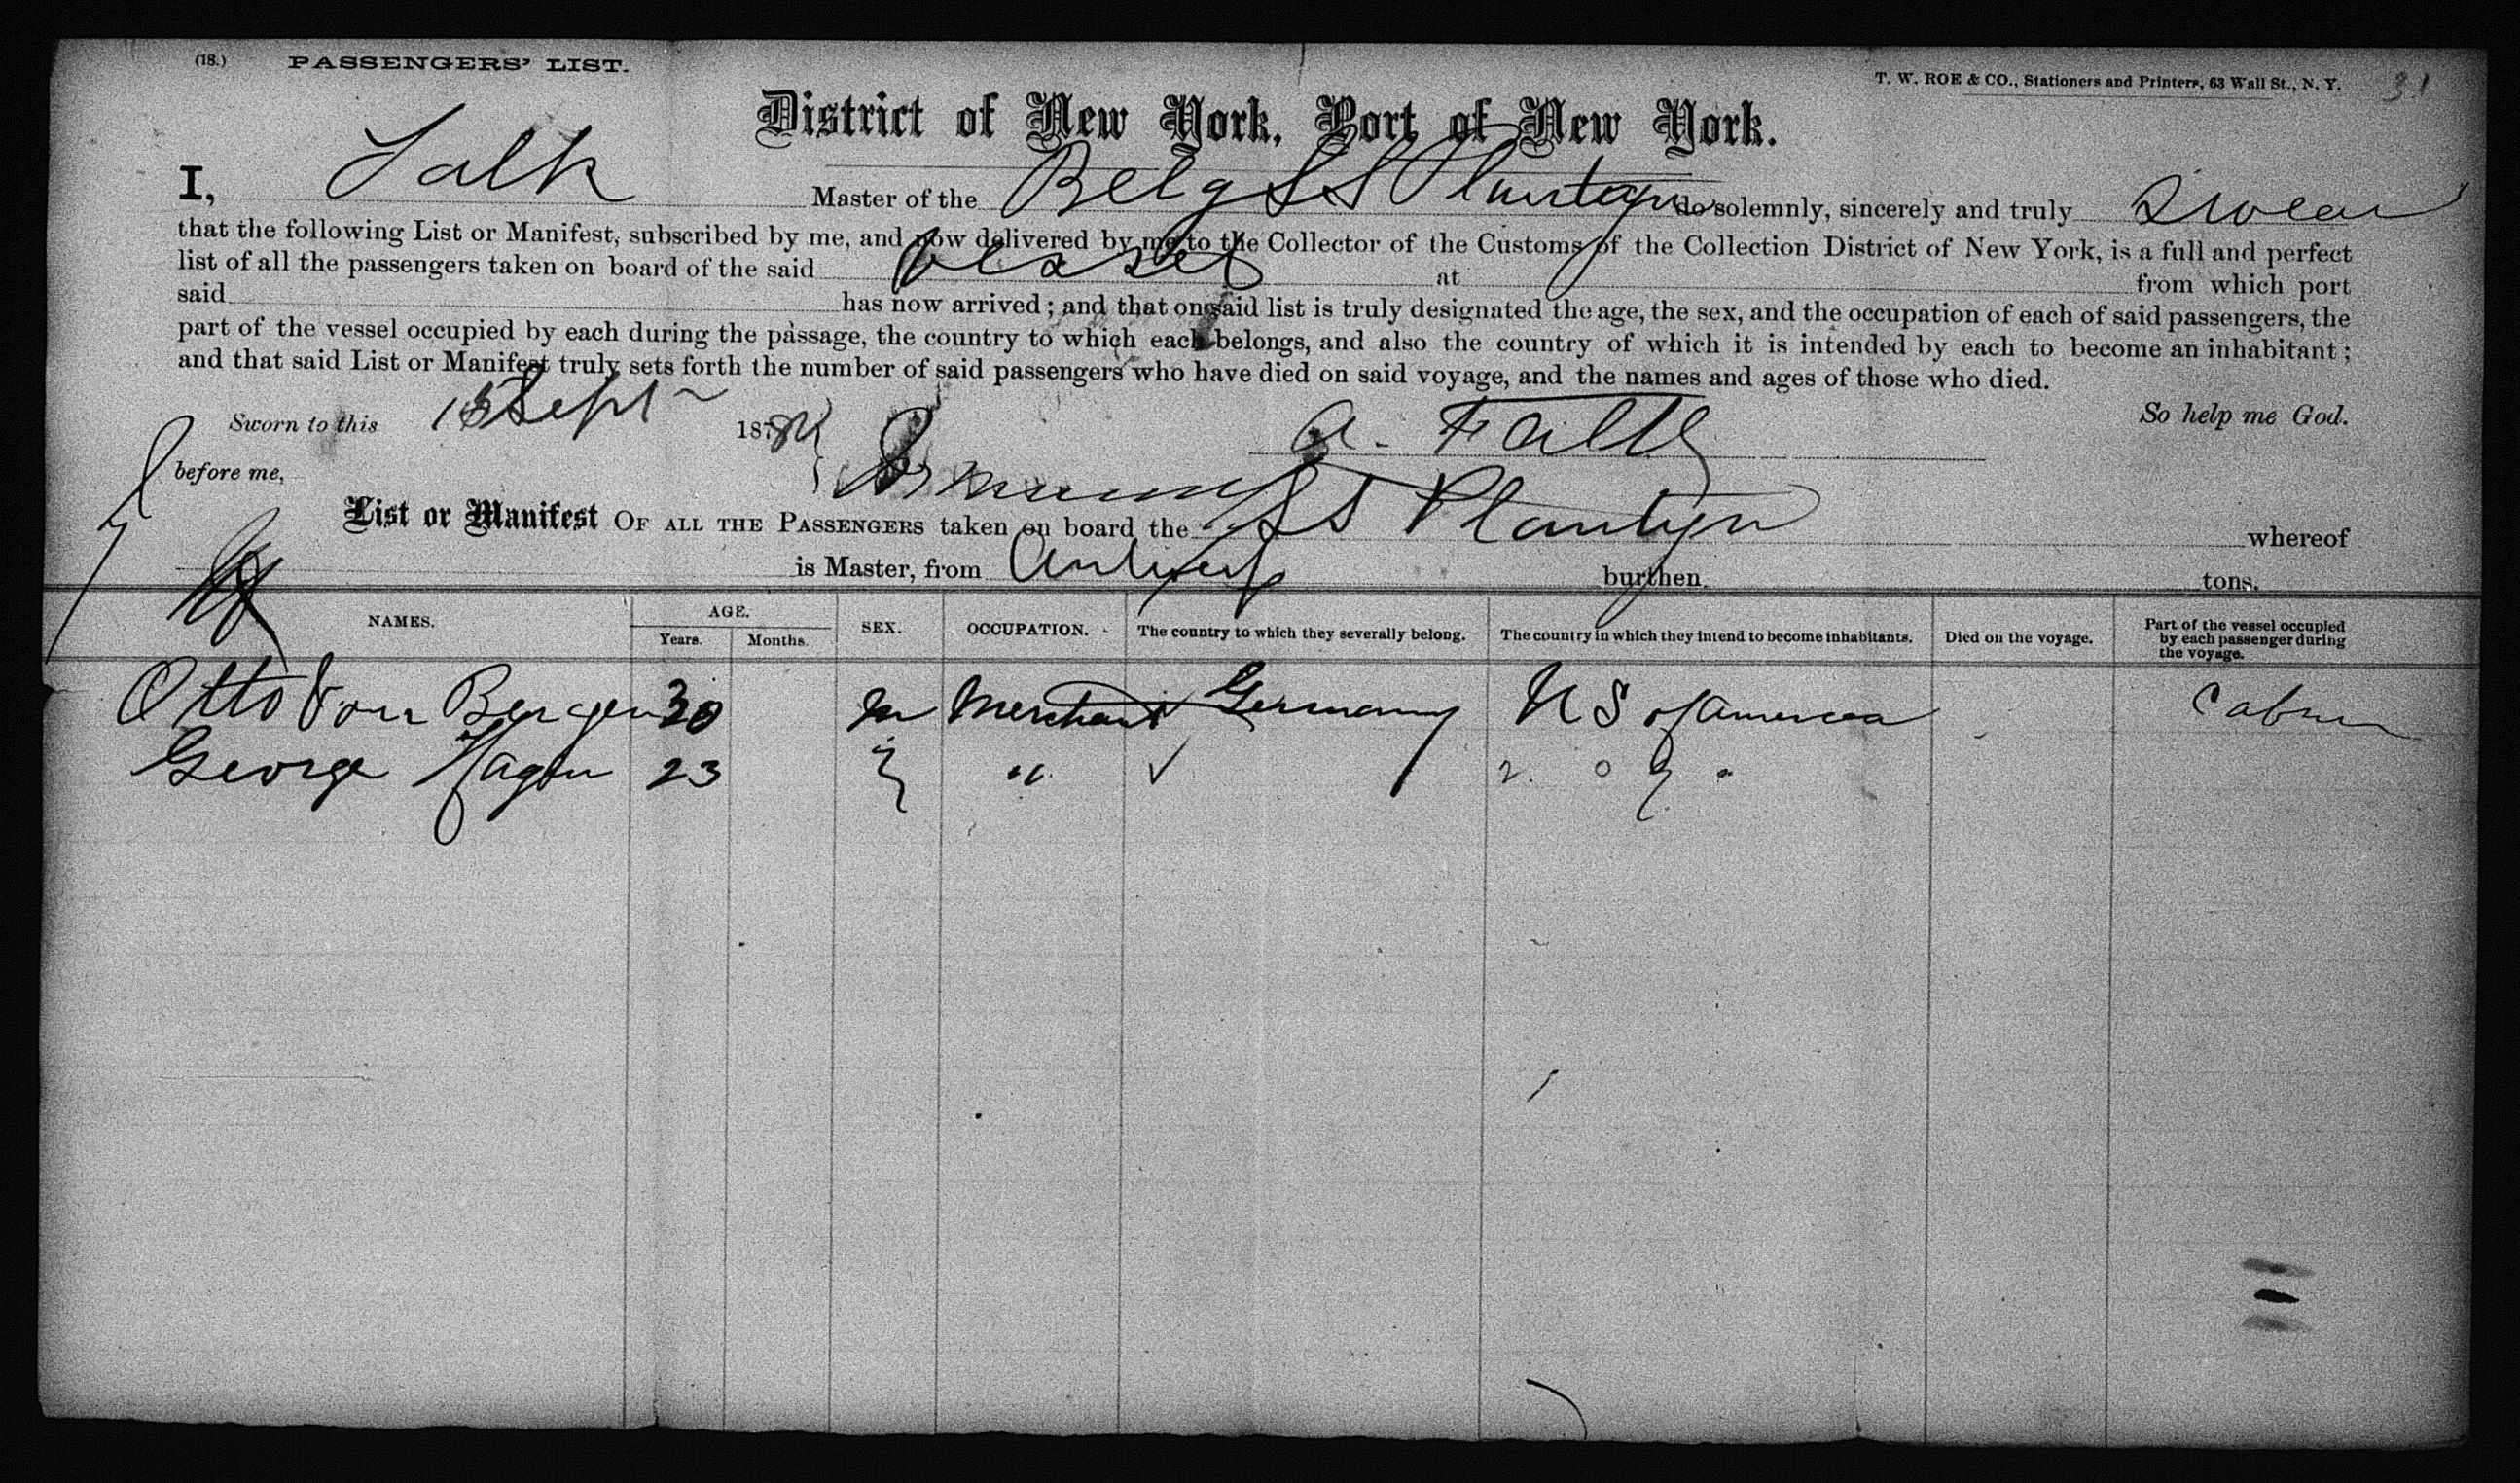 (18.) PASSENGERS' LIST.
T. W. ROE & CO., Stationers and Printers, 63 Wall St., N. Y. 31
District of New York, Port of New York.
I, Falk Master of the Belg SS Plantyn do solemnly, sincerely and truly swear
that the following List or Manifest, subscribed by me, and now delivered by me to the Collector of the Customs of the Collection District of New York, is a full and perfect
list of all the passengers taken on board of the said vessel at from which port
said has now arrived; and that on said list is truly designated the age, the sex, and the occupation of each of said passengers, the
part of the vessel occupied by each during the passage, the country to which each belongs, and also the country of which it is intended by each to become an inhabitant;
and that said List or Manifest truly sets forth the number of said passengers who have died on said voyage, and the names and ages of those who died.
So help me God.
Sworn to this Sept 187
A. Falk
before me,
List or Manifest OF ALL THE PASSENGERS taken on board the SS Plantyn whereof
is Master, from Antwerp burthen tons.
NAMES. AGE. Years. Months. SEX. OCCUPATION. The country to which they severally belong. The country in which they intend to become inhabitants. Died on the voyage. Part of the vessel occupied by each passenger during the voyage.
Otto Von Bergen 30 m Merchant Germany US of America Cabin
George Hagen 23 " "